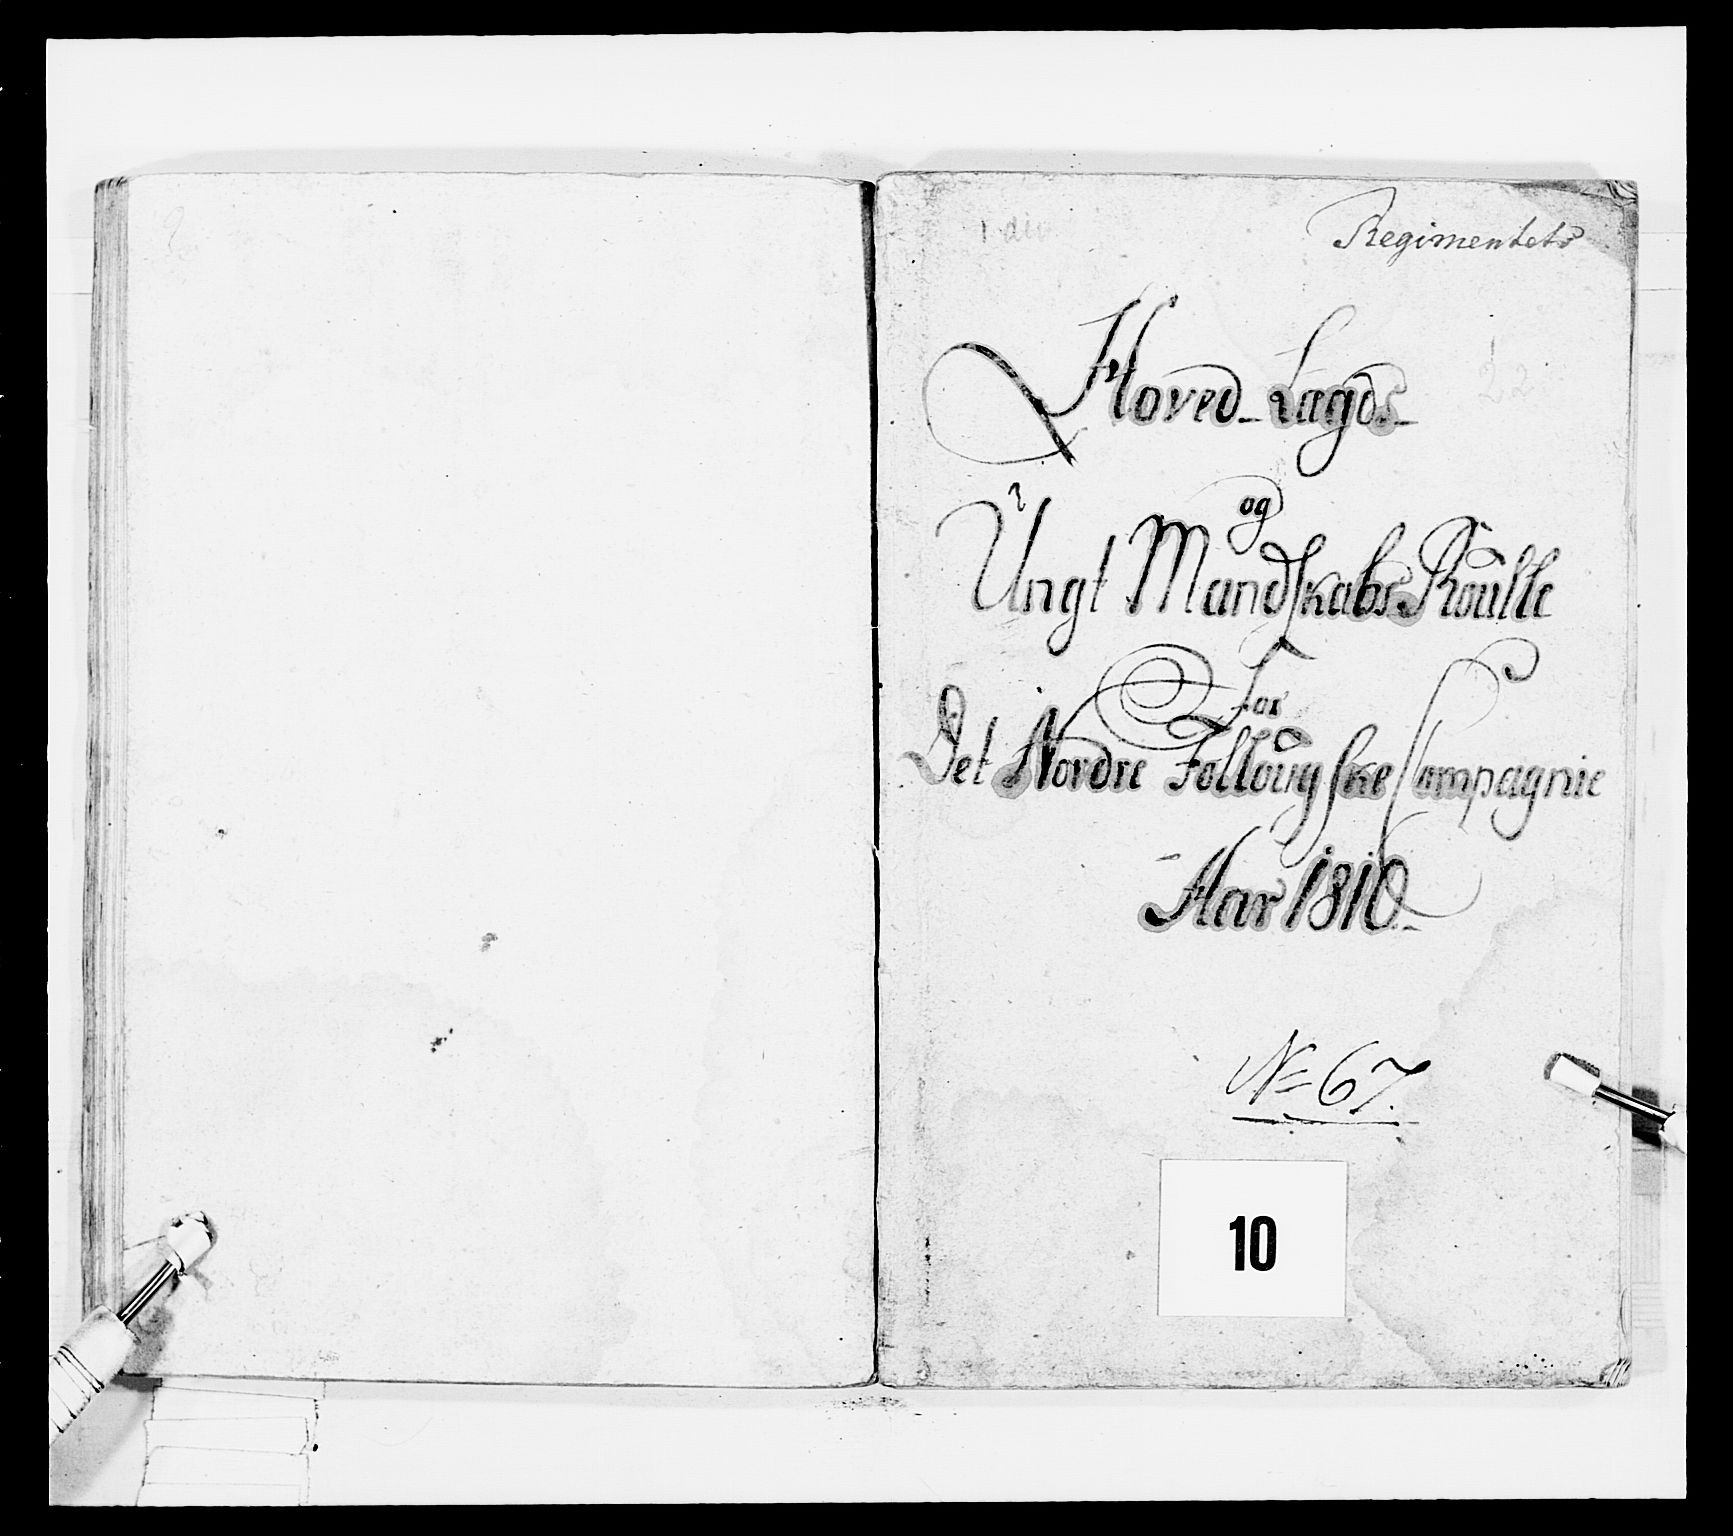 Regimentets
Hoved-Lægds-
og
Ungt Mandskabs Roulle
for
Det Nordre Follougske Compagnie
Aar 1810.
No 67.
10